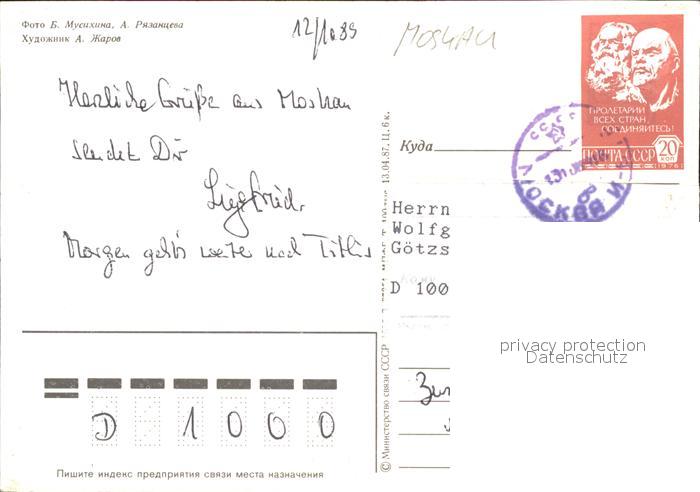 Фото Б. Мусихина, А. Рязанцева
Художник А. Жаров
12/10 89
MOSKAU
Herzliche Grüße aus Moskau
sendet Dir
Siegfried.
Morgen geht's weiter nach Tiflis
ПРОЛЕТАРИИ
ВСЕХ СТРАН,
СОЕДИНЯЙТЕСЬ!
ПОЧТА СССР 20 КОП
(1976)
СССР
МОСКВА
Куда
Herrn
Wolfg
Götzs
D 100
13.04.87. Ц. 6 к.
© Министерство связи СССР
D 1000
Пишите индекс предприятия связи места назначения
privacy protection
Datenschutz